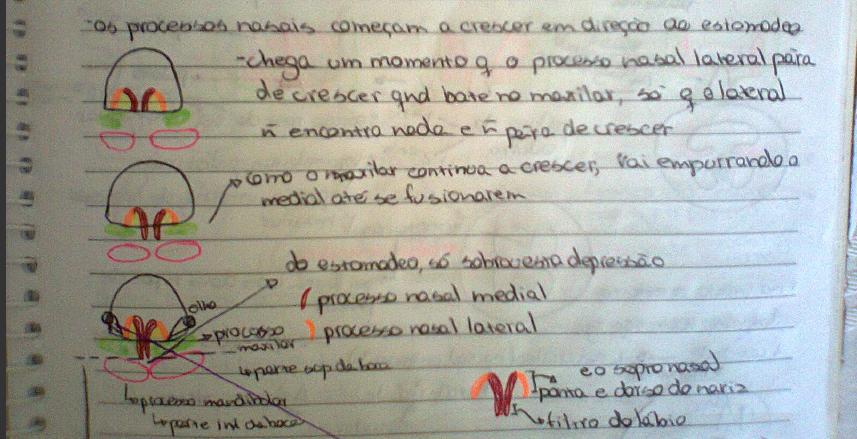 -os processos nasais começam a crescer em direção ao estomodeo
-chega um momento q o processo nasal lateral pára
de crescer qnd bate no maxilar, só q o lateral
ñ encontra nada e ñ pára de crescer
como o maxilar continua a crescer, vai empurrando o
medial até se fusionarem
do estomodeo, só sobrou esta depressão
processo nasal medial
olho
processo
maxilar
processo nasal lateral
parte sup da boca
processo mandibular
parte inf da boca
e o septo nasal
ponta e dorso do nariz
filtro do lábio